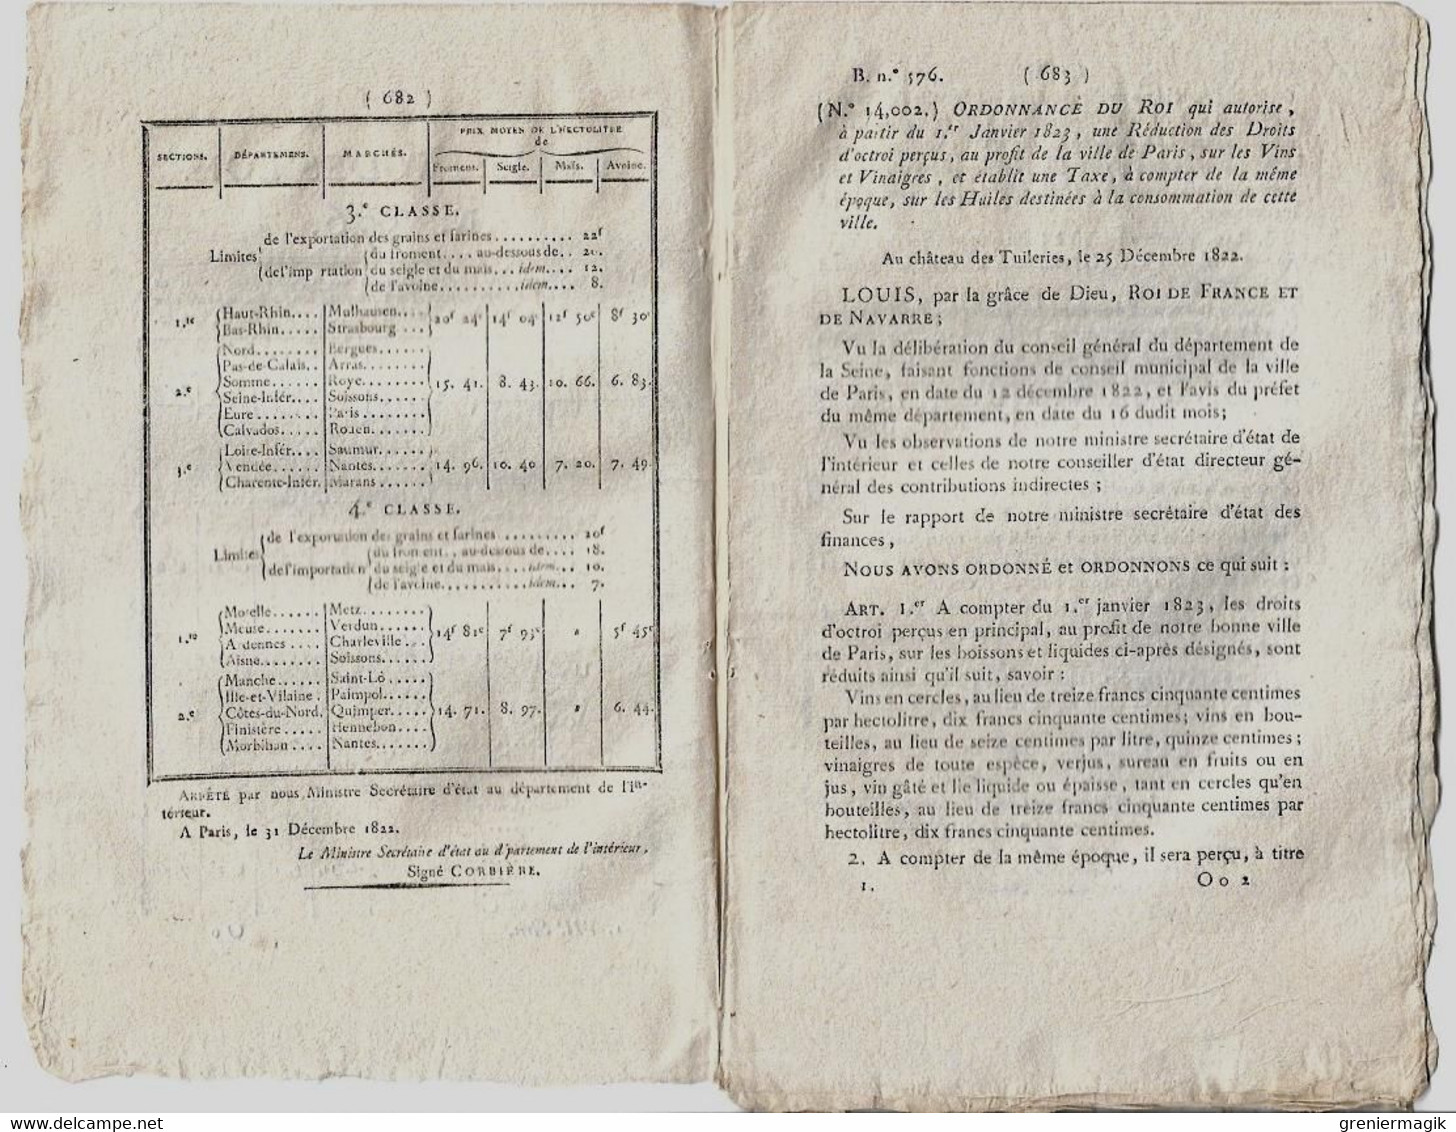 ( 682 )
PRIX MOYEN DE L'HECTOLITRE
de
SECTIONS. DÉPARTEMENS. MARCHÉS.
Froment. Seigle. Maïs. Avoine.
3.e CLASSE.
de l'exportation des grains et farines .......... 22f
Limites du froment.... au-dessous de.. 20.
de l'imp rtation du seigle et du mais... idem.... 12.
de l'avoine.......... idem.... 8.
1.re Haut-Rhin.... Mulhausen.... 20f 24c 14f 04c 12f 50c 8f 30c
Bas-Rhin..... Strasbourg ...
Nord........ Bergues......
Pas-de-Calais.. Arras........
2.e Somme...... Roye........ 15. 41. 8. 43. 10. 66. 6. 83.
Seine-Infér.... Soissons......
Eure ........ Paris ........
Calvados..... Rouen.......
Loire-Infér... Saumur......
3.e Vendée...... Nantes....... 14. 96. 10. 40 7. 20. 7. 49.
Charente-Infér. Marans ......
4.e CLASSE.
de l'exportation des grains et farines .......... 20f
Limites du froment., au-dessous de.... 18.
de l'importation du seigle et du mais.... idem.... 10.
de l'avoine........... idem.... 7.
Moselle...... Metz........
1.re Meuse....... Verdun...... 14f 81c 7f 93c " 5f 45c
A dennes .... Charleville ...
Aisne........ Soissons......
Manche...... Saint-Lô.....
Ille-et-Vilaine . Paimpol......
2.e Côtes-du-Nord. Quimper..... 14. 71. 8. 97. " 6. 44.
Finistère..... Hennebon....
Morbihan .... Nantes.......
ARRÊTÉ par nous, Ministre Secrétaire d'état au département de l'In-
térieur.
A Paris, le 31 Décembre 1822.
Le Ministre Secrétaire d'état au d'partement de l'intérieur,
Signé CORBIÈRE.
B. n.° 576. ( 683 )
(N.° 14,002.) ORDONNANCE DU ROI qui autorise,
à partir du 1.er Janvier 1823, une Réduction des Droits
d'octroi perçus, au profit de la ville de Paris, sur les Vins
et Vinaigres, et établit une Taxe, à compter de la même
époque, sur les Huiles destinées à la consommation de cette
ville.
Au château des Tuileries, le 25 Décembre 1822.
LOUIS, par la grâce de Dieu, ROI DE FRANCE ET
DE NAVARRE;
Vu la délibération du conseil général du département de
la Seine, faisant fonctions de conseil municipal de la ville
de Paris, en date du 12 décembre 1822, et l'avis du préfet
du même département, en date du 16 dudit mois;
Vu les observations de notre ministre secrétaire d'état de
l'intérieur et celles de notre conseiller d'état directeur gé-
néral des contributions indirectes;
Sur le rapport de notre ministre secrétaire d'état des
finances,
NOUS AVONS ORDONNÉ et ORDONNONS ce qui suit:
ART. 1.er A compter du 1.er janvier 1823, les droits
d'octroi perçus en principal, au profit de notre bonne ville
de Paris, sur les boissons et liquides ci-après désignés, sont
réduits ainsi qu'il suit, savoir:
Vins en cercles, au lieu de treize francs cinquante centimes
par hectolitre, dix francs cinquante centimes; vins en bou-
teilles, au lieu de seize centimes par litre, quinze centimes;
vinaigres de toute espèce, verjus, sureau en fruits ou en
jus, vin gâté et lie liquide ou épaisse, tant en cercles qu'en
bouteilles, au lieu de treize francs cinquante centimes par
hectolitre, dix francs cinquante centimes.
2. A compter de la même époque, il sera perçu, à titre
1. Oo 2
greniermagik